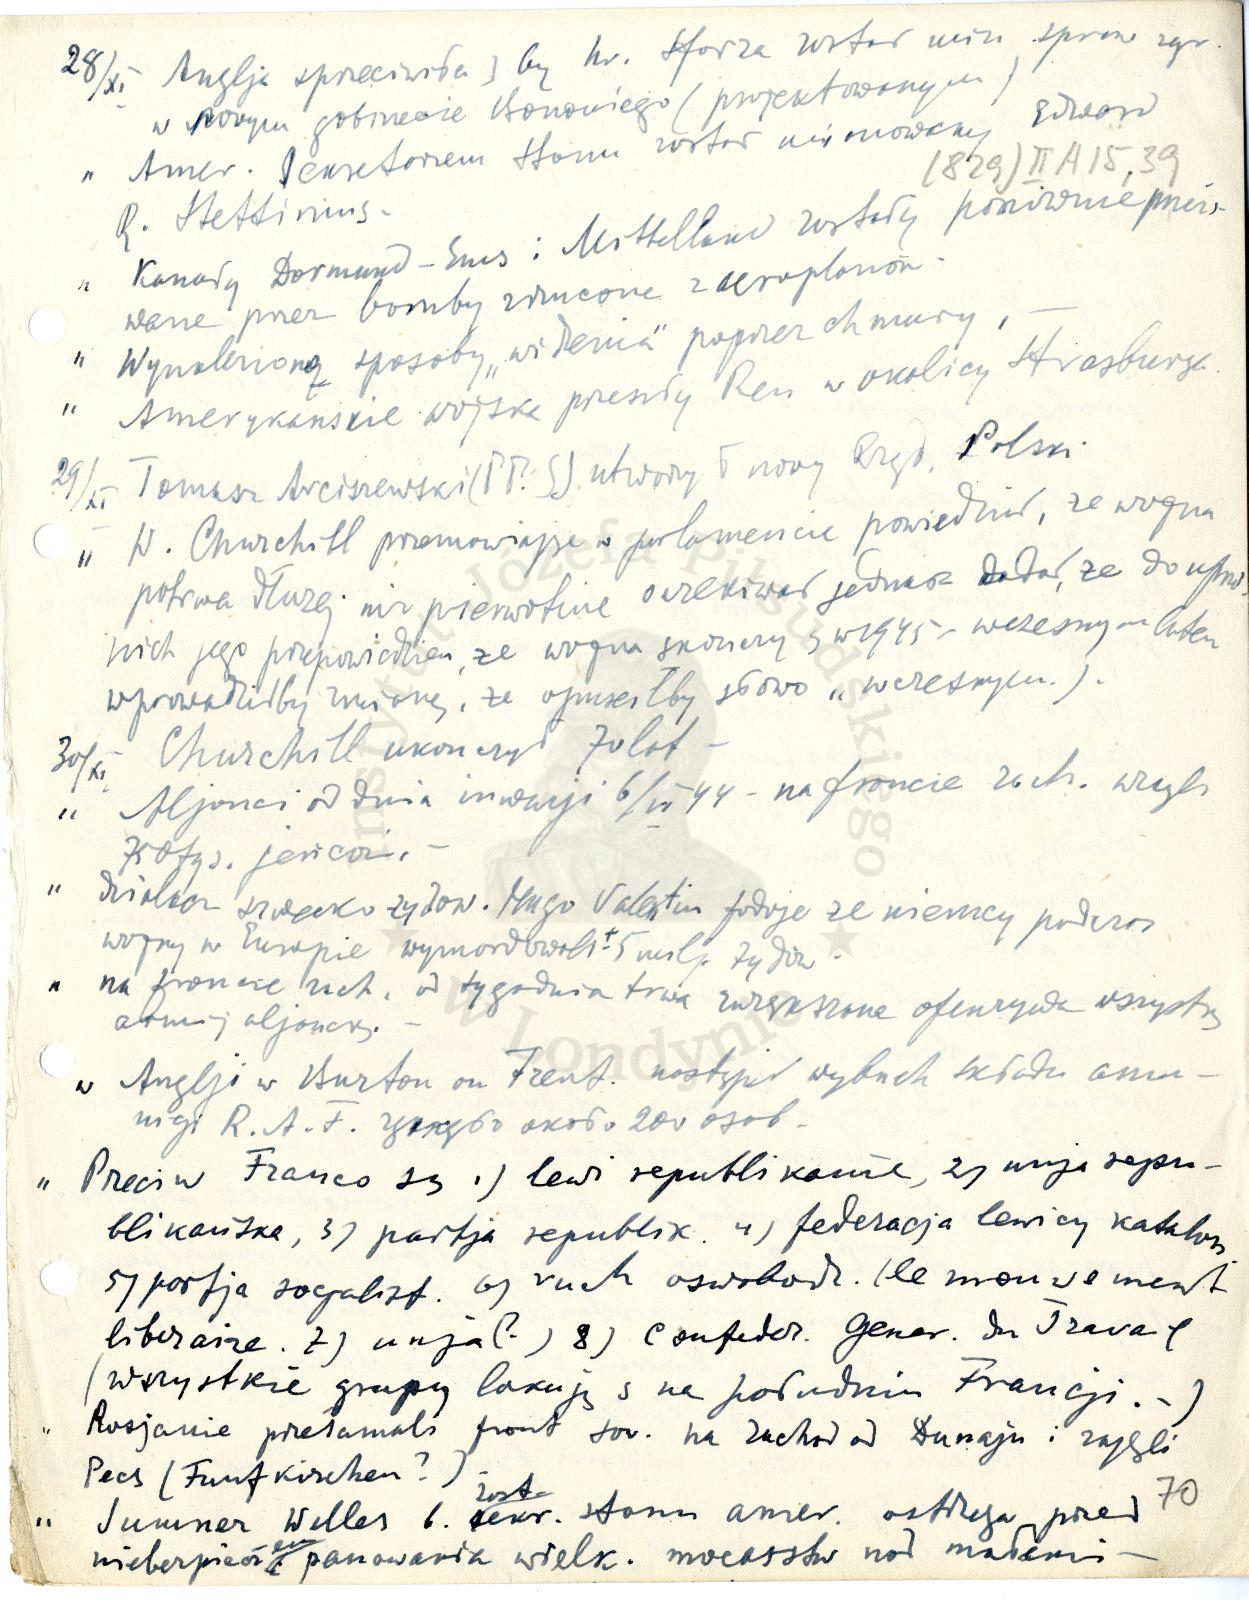 28/XI Anglja sprzeciwiła ś by hr. Sforza został min. spraw zgr.
w nowym gabinecie Bonomiego (projektowanym)
" Amer. Sekretarzem Stanu został mianowany Edward
(829) II A 15,39
R. Stettinius.
" Kanały Dormund-Ems i Mittelland zostały ponownie
wane przez bomby zrzucone z aeroplanów.
" Wynaleziono sposoby „widzenia" poprzez chmury, —
" Amerykańskie wojska przeszły Ren w okolicy Strasburga.
29/XI Tomasz Arciszewski (P.P.S) utworzył nowy Rząd. Polski
" W. Churchill przemawiając w parlamencie powiedział, że wojna
potrwa dłużej niż pierwotnie oczekiwał jednak dodał, że do
nich jego przepowiedzien, że wojna skończy ś w 1945 - wczesnym latem
wprowadziłby zmianę, że opuściłby słowo „wczesnym.).
30/XI Churchill ukończył 70 lat —
" Aljanci od dnia inwazji 6/VI 44 - na froncie zach. wzięli
750 tys. jeńców. —
" Działacz szwedzko żydow. Hugo Valentin podaje że niemcy podczas
wojny w Europie wymordowali ± 5 milj. Żydów.
" na froncie zach. od tygodnia trwa zwiększona ofenzywa wszystk
armij aljanck. —
" w Anglji w Burton on Trent. nastąpił wybuch składu amu-
nicji R.A.F. zginęło około 200 osób -
" Przeciw Franco są 1) lewi republikanie, 2) unja repu-
blikańska, 3) partja republik. 4) federacja lewicy katalon
5) partja socjalist. 6) ruch oswobodz. (le mouvement
liberaire. 7) unja (?) 8) Confeder. Gener. du Travail
(wszystkie grupy lokują ś na południu Francji. -)
" Rosjanie przełamali front sow. na zachód od Dunaju i zajęli
Pecs (Funfkirchen?)
zast.
" Sumner Welles b. sekr. stanu amer. ostrzega przed 70
panowania wielk. mocarstw nad małemi —